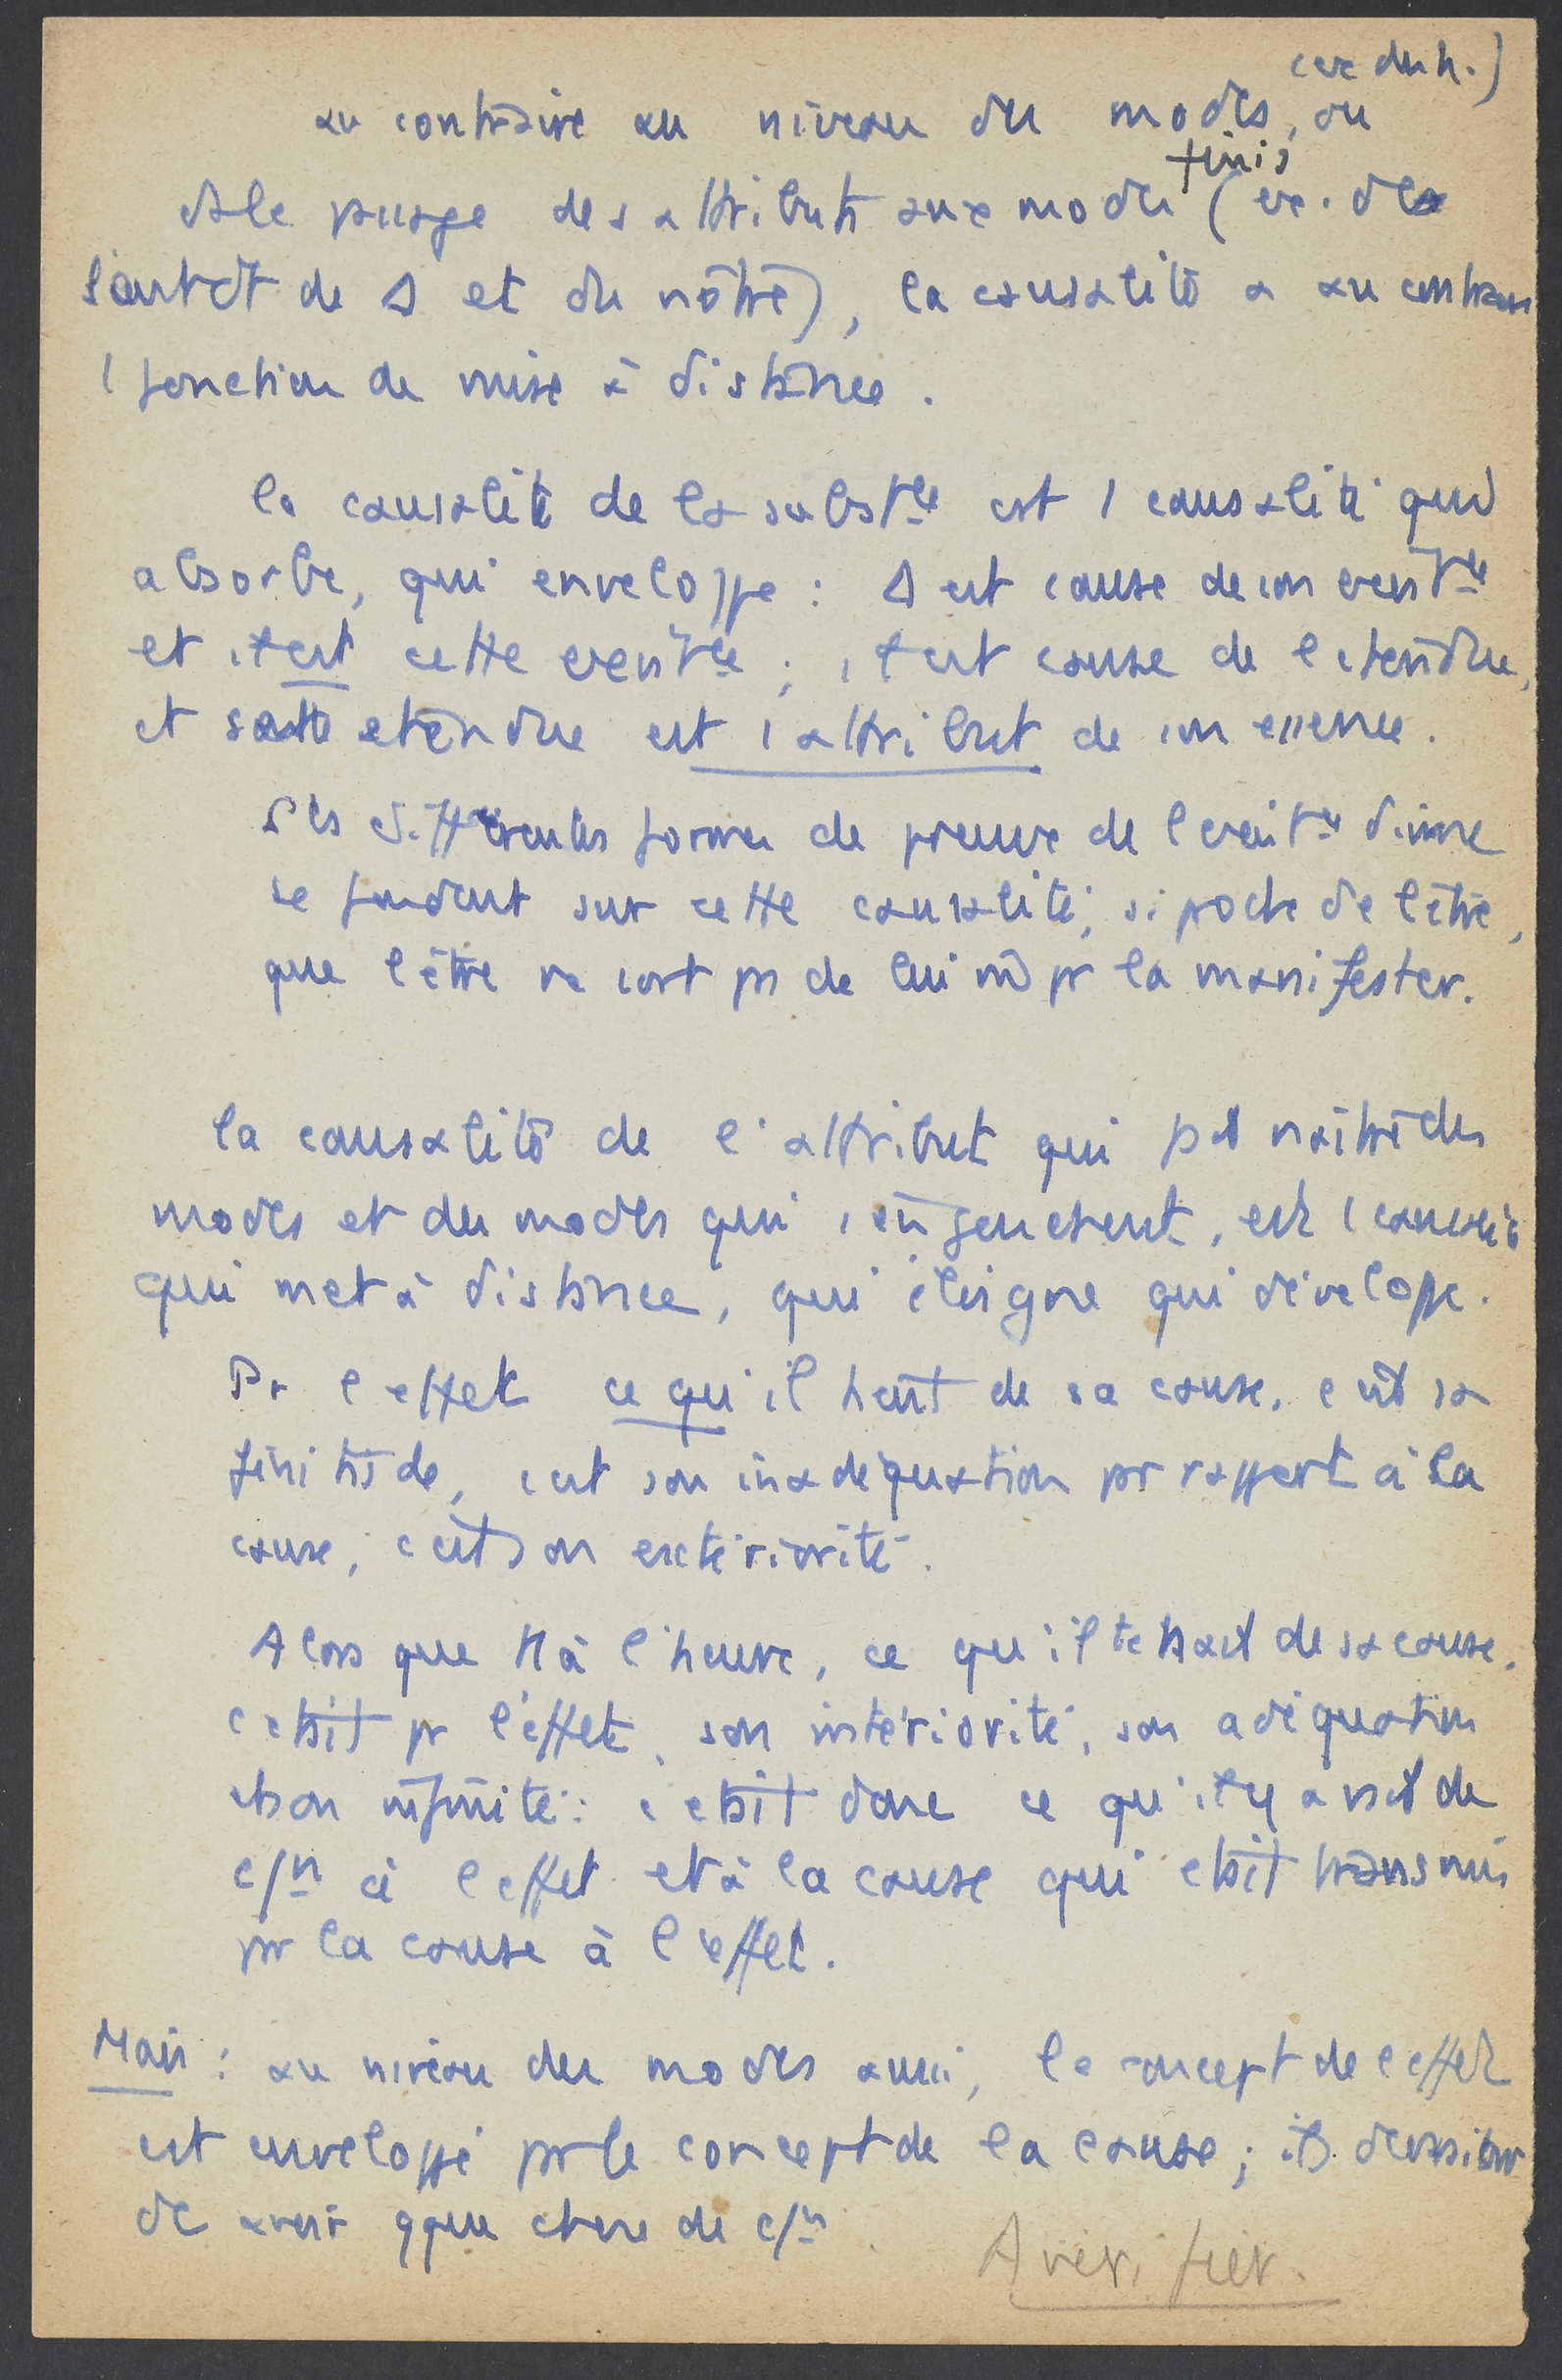 (ex du h.)
au contraire au niveau des modes, ou
finis
ds le passge des attributs aux modes (ex. de
l'entdt de Δ et du nôtre), la causalité a au contraire
1 fonction de mise à distance.
la causalité de la substce est 1 causalité qui
absorbe, qui enveloppe : Δ est cause de son existce
et il est cette existce ; il est cause de l'étendue,
et cette étendue est 1 attribut de son essence.
Les différentes formes de preuve de l'existce divine
se fondent sur cette causalité, si proche de l'être,
que l'être ne sort ps de lui m̂ pr la manifester.
la causalité de l'attribut qui fait naître des
modes et des modes qui s'engendrent, est 1 causalité
qui met à distance, qui éloigne qui développe.
Pr l'effet ce qu'il tient de sa cause, c'est sa
finitude, c'est son inadéquation pr rapport à la
cause, c'est son extériorité.
Alors que tt à l'heure, ce qu'il tenait de sa cause,
c'était pr l'effet, son intériorité, son adéquation
et son infinité : c'était donc ce qu'il y avait de
c/n à l'effet et à la cause qui était transmis
pr la cause à l'effet.
Mais : au niveau des modes aussi, le concept de l'effet
est enveloppé pr le concept de la cause ; ils
dc avoir qque chose de c/n.
A vérifier.